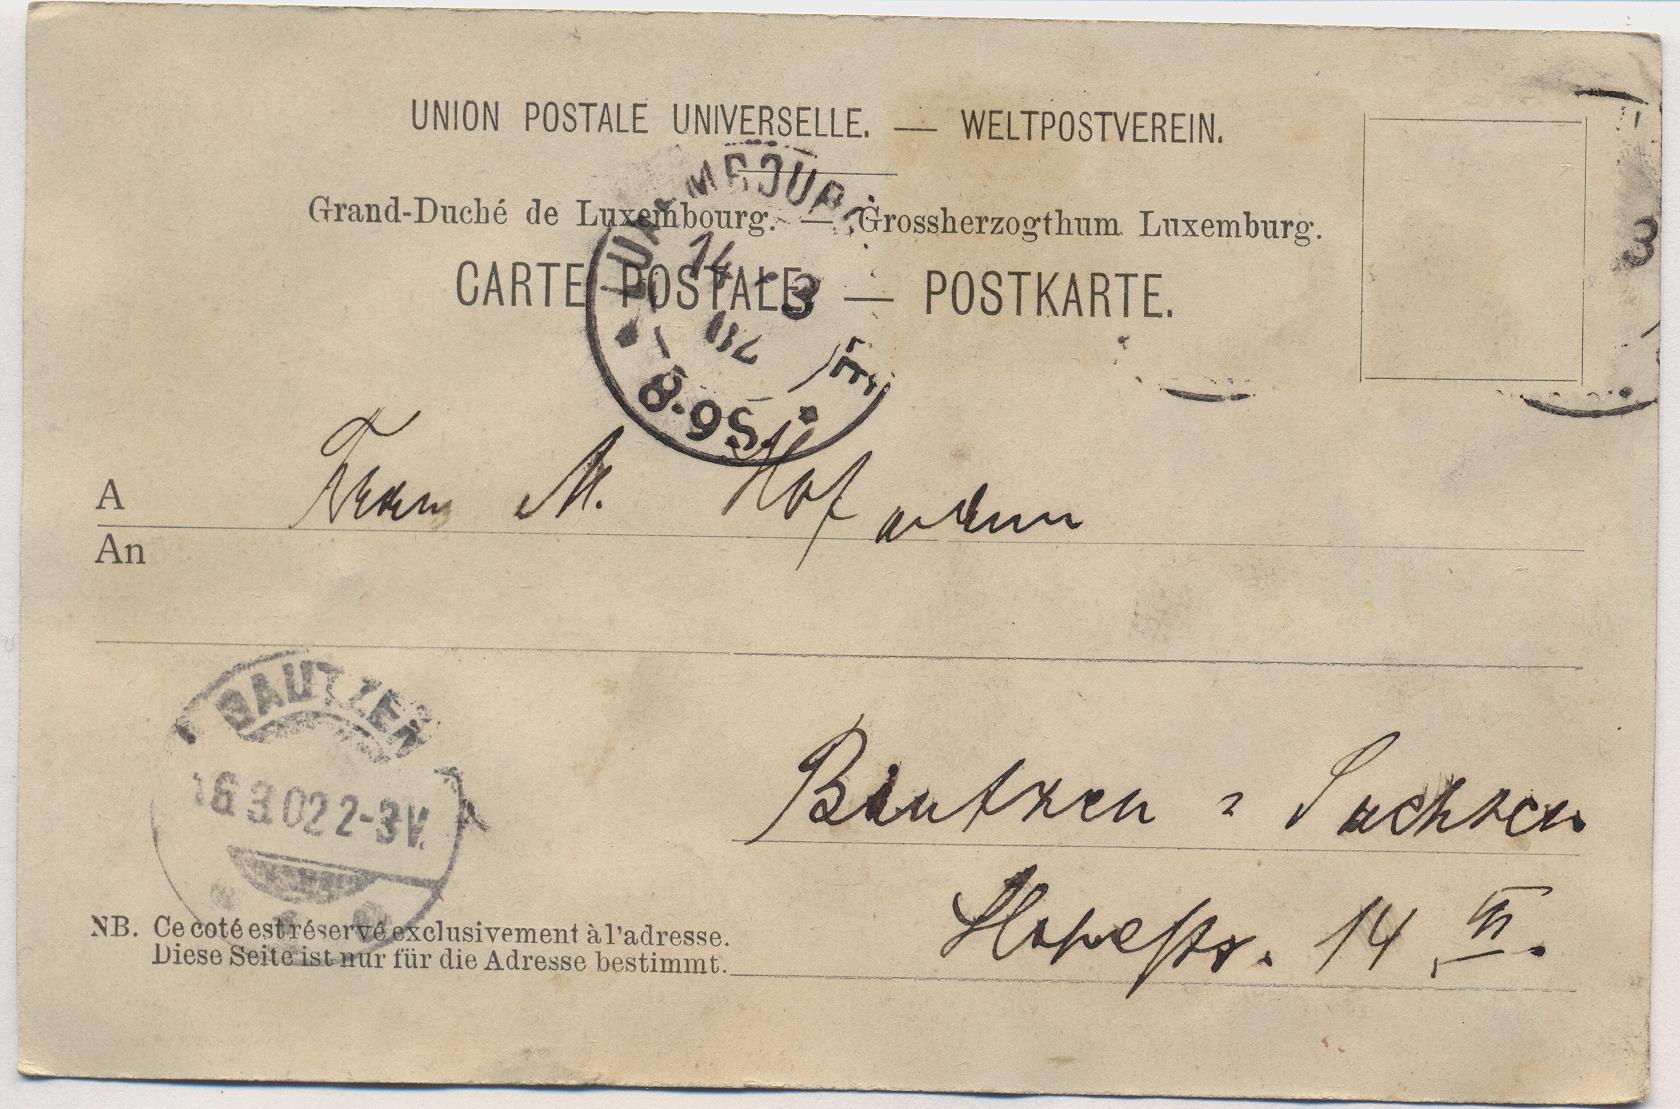 UNION POSTALE UNIVERSELLE. — WELTPOSTVEREIN.
Grand-Duché de Luxembourg. — Grossherzogthum Luxemburg.
CARTE POSTALE — POSTKARTE.
LUXEMBOURG
14 - 3
02
8-9S.
3
A
An
M. Hofmann
BAUTZEN
16.3.02 2-3V.
Bautzen - Sachsen
14 III.
NB. Ce coté est réservé exclusivement à l'adresse.
Diese Seite ist nur für die Adresse bestimmt.